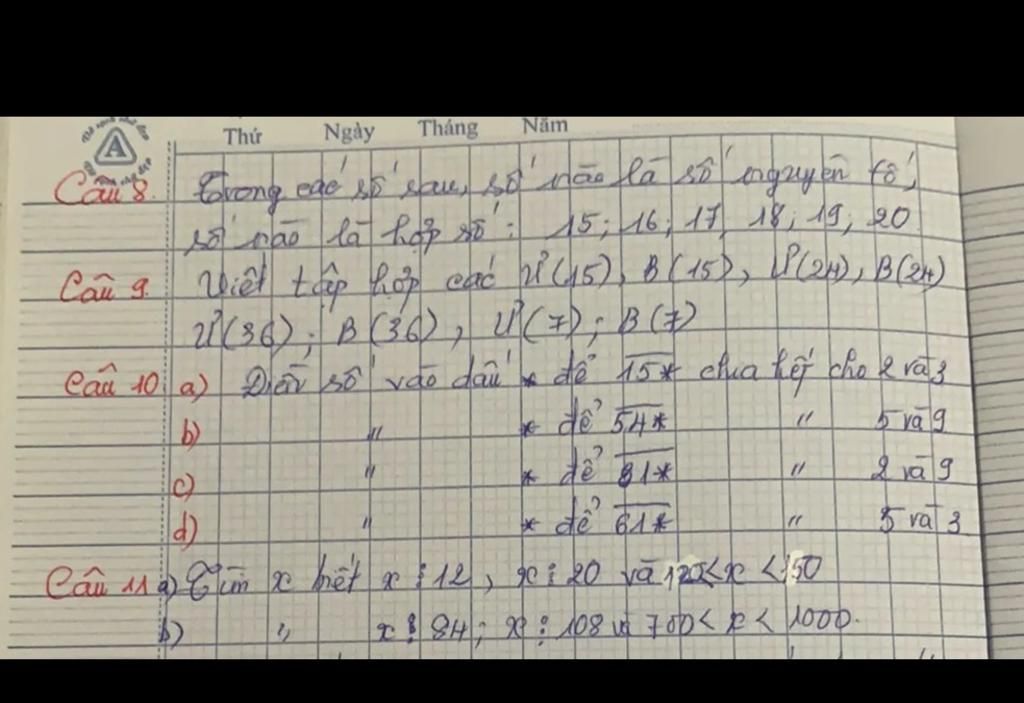 A
Thứ Ngày Tháng Năm
Câu 8. Trong các số sau, số nào là số nguyên tố,
số nào là hợp số: 15; 16; 17; 18; 19; 20
Câu 9. Viết tập hợp các Ư(15), B(15), Ư(24), B(24)
Ư(36); B(36), Ư(7); B(7)
Câu 10 a) Điền số vào dấu * để 15* chia hết cho 2 và 3
b) " * để 54* " 5 và 9
c) " * để 81* " 2 và 9
d) " * để 61* " 5 và 3
Câu 11 a) Tìm x biết x ⋮ 12, x ⋮ 20 và 120 < x < 150
b) " x ⋮ 84; x ⋮ 108 và 700 < x < 1000.